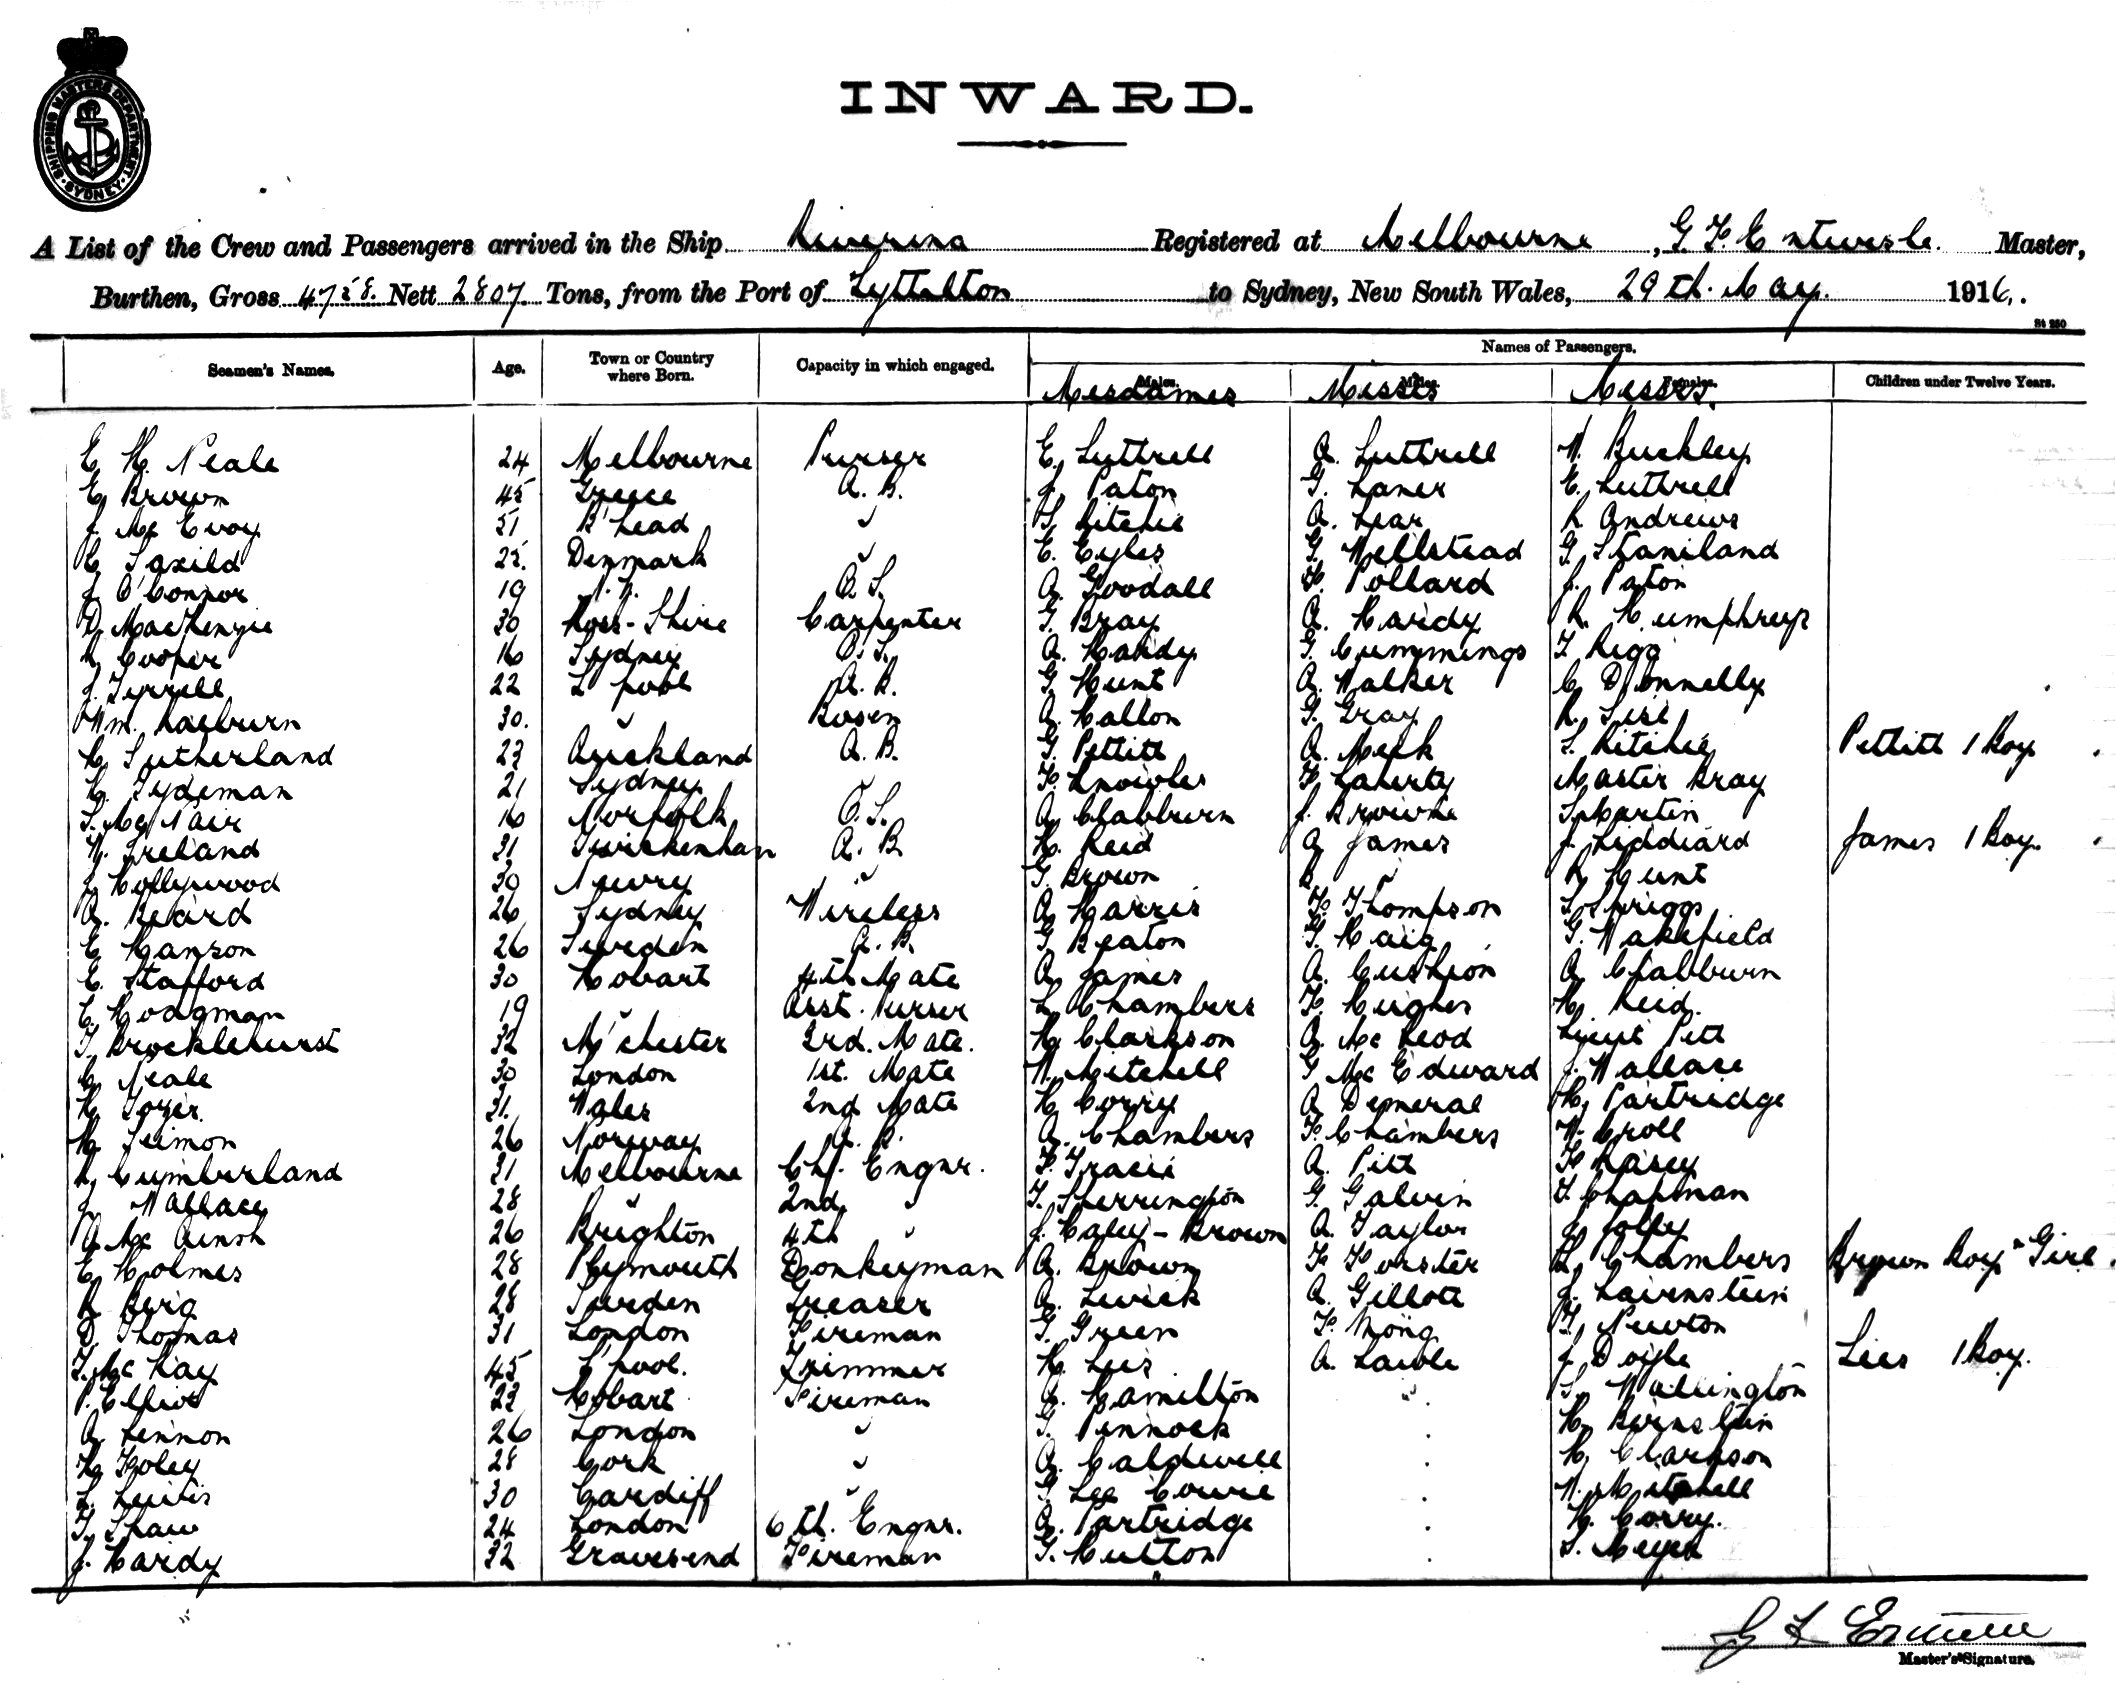 SHIPPING MASTERS DEPARTMENT SYDNEY
INWARD.
A List of the Crew and Passengers arrived in the Ship Riverina Registered at Melbourne, G. F. Entwisle. Master,
Burthen, Gross 4758. Nett 2807. Tons, from the Port of Lyttelton to Sydney, New South Wales, 29th. May. 1916.
St 250
Seamen's Names. Age. Town or Country where Born. Capacity in which engaged. Names of Passengers.
Males. Males. Females. Children under Twelve Years.
Mesdames Misses Messrs.
E. H. Neale 24 Melbourne Purser E. Luttrell A. Luttrell W. Buckley
E. Brown 45 Greece A. B. J. Paton G. Laner E. Luttrell
J. Mc Evoy 51 B'head " S. Ritchie A. Lear R. Andrews
C. Saxild 25. Denmark " E. Eyles G. Wellstead G. Staniland
J. O'Connor 19 N. Z. O. S. A. Goodall F. Pollard J. Paton
D. MacKenzie 30 Ross-Shire Carpenter G. Bray A. Hardy R. Humphreys
R. Cooper 16 Sydney O. S. A. Hardy G. Cummings T. Rigg
J. Tyrrell 22 L'pool A. B. G. Hunt A. Walker C. Donnelly
Wm. Raeburn 30. " Bosen A. Hallon G. Gray R. Sisi
H. Sutherland 23 Auckland A. B. G. Pettitt A. Meek S. Ritchie Pettitt 1 Boy
H. Sydeman 21 Sydney " F. Knowles F. Laherty Master Bray
S. Mc Nair 16 Norfolk O. S. A. Clabburn J. Browne S. Martin
W. Ireland 31 Twickenham A. B. H. Reid A. James J. Liddiard James 1 Boy.
J. Hollywood 30 Newry " G. Brown B. " R. Hunt
A. Beard 26 Sydney Wireless A. Harris F. Thompson S. Spriggs
E. Hanson 26 Sweden A. B. G. Beaton G. Haig G. Wakefield
E. Stafford 30 Hobart 4th Mate A. James A. Cushion A. Clabburn
E. Hodgman 19 " Asst. Purser L. Chambers F. Hughes H. Reid.
T. Brocklehurst 32 M'chester 3rd. Mate. H. Clarkson A. Mc Leod Lieut Pitt
C. Neale 30 London 1st. Mate W. Mitchell G. Mc Edward J. Wallace
H. Tozer. 31. Wales 2nd Mate H. Corry A. Demeral H. Partridge
H. Seimon 26 Norway A. B. A. Chambers F. Chambers W. Croll
R. Cumberland 31 Melbourne Chf. Engnr. F. Tracii A. Pitt F. Kasey
J. Wallace 28 " 2nd " T. Sherrington G. Galvin T. Chapman
A. Mc Ainsh 26 Brighton 4th " J. Haley-Brown A. Taylor J. Jolly
E. Holmes 28 Plymouth Donkeyman A. Brown F. Forster L. Chambers Brown Boy " Girl.
R. Berg 28 Sweden Greaser A. Levick A. Gillott J. Lairnstein
D. Thomas 31 London Fireman G. Green F. Wong T. Newton
T. Mc Kay 45 L'pool. Trimmer H. Lees A. Lawle J. Doyle Lees 1 Boy.
P. Elliot 23 Hobart Fireman A. Hamilton " S. Wallington
A. Lennon 26 London " G. Pennock H. Birnstein
H. Foley 28 Cork " A. Caldwell H. Clarkson
L. Lewis 30 Cardiff " G. Lee Cowie W. Mitchell
T. Shaw 24 London 6th. Engnr. A. Partridge H. Corry.
J. Hardy 32 Gravesend Fireman G. Hutton S. Meyer
Master's Signature.